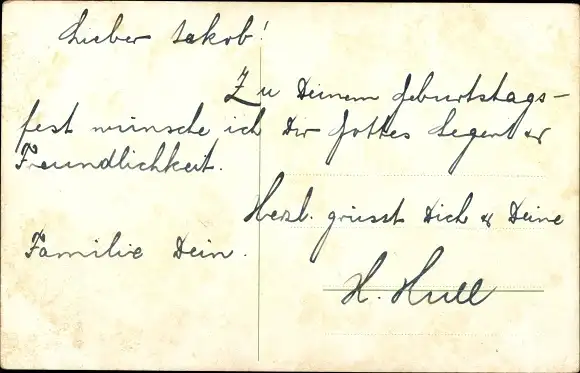 Lieber Jakob!
Zu Deinem Geburtstags-
fest wünsche ich Dir Gottes Segen &
Freundlichkeit.
Herzl. grüsst Dich & Deine
Familie Dein.
H. Hull